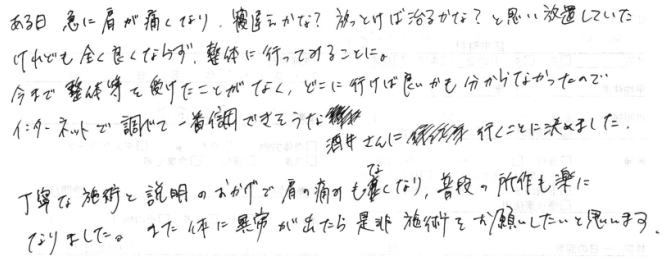 ある日 急に肩が痛くなり、寝違えかな？ 放っとけば治るかな？と思い放置していた
けれども全く良くならず、整体に行ってみることに。
今まで整体等を受けたことがなく、どこに行けば良いかも分からなかったので
インターネットで調べて一番信頼できそうな
酒井さんに 行くことに決めました。
丁寧な施術と説明のおかげで肩の痛みもなくなり、普段の所作も楽に
なりました。また体に異常が出たら是非施術をお願いしたいと思います。